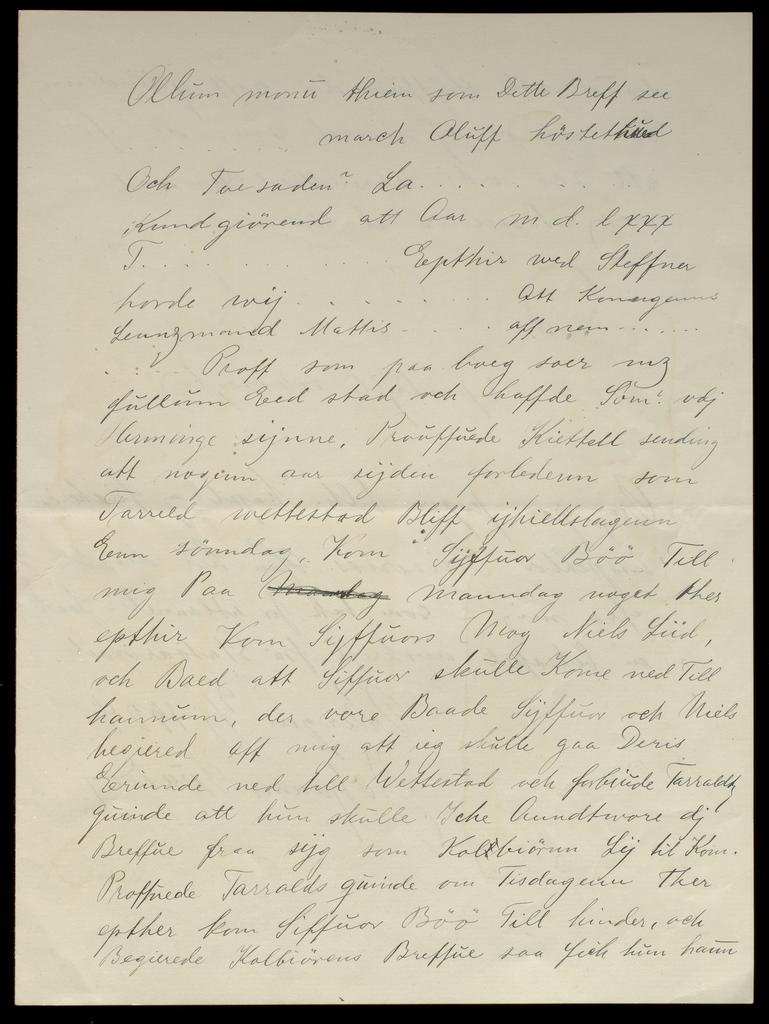 Ollum monu thiem som Dette Breff see
. . . . . . . . march Oluff hostethued
Och Toe saden? La. . . . . . .
Kundgiörend att Aar m. d. l xxx
T. . . . . . . . . . . Eepthir wed Steffner
horde wij. . . . . . . . Att Konnganns
Lennzmannd Mattis. . . . . aff nem. . . . . .
. . . Proff som paa boeg soer mz
fullum Eed stod och haffde Som! vdj
Herminge sijnne, Prouffuede Kiettell sending
att noginn aar sijden forledenn som
Tarreld wettestad Bliff ijhiellslagenn
Eenn sönndag, Kom Sijffuor Böö Till
mig Paa manndag noget ther
epthir Kom Sijffuors Mog Niels Liid,
och Baed att Siffuor skulle Kome ned Till
hannum, der vore Baade Sijffuor och Niels
begiered aff mig att ieg skulle gaa Deris
Erinnde ned till Wettestad och forbiude Tarraldz
quinde att hun skulle Iche Anndtwore dj
Breffue fraa sijg som Kolbiörnn Lij til Kom.
Proffuede Tarralds quinde om Tisdagenn ther
epther kom Siffuor Böö Till hinder, och
Begierede Kolbiörens Breffue saa fich hun hann